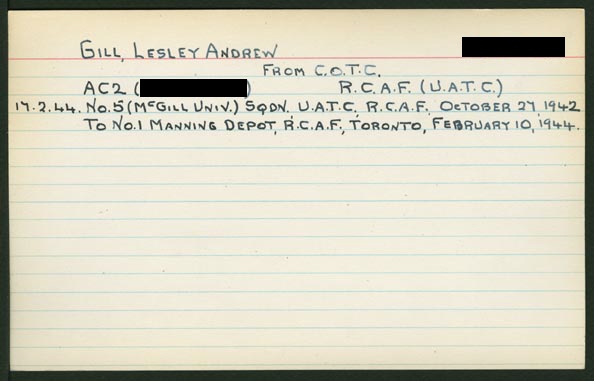 GILL, LESLEY ANDREW
FROM C.O.T.C.
AC2 ( ) R.C.A.F. (U.A.T.C.)
17.2.44. No.5 (McGILL UNIV.) SQDN. U.A.T.C. R.C.A.F. OCTOBER 27, 1942
TO No.1 MANNING DEPOT, R.C.A.F., TORONTO, FEBRUARY 10, 1944.